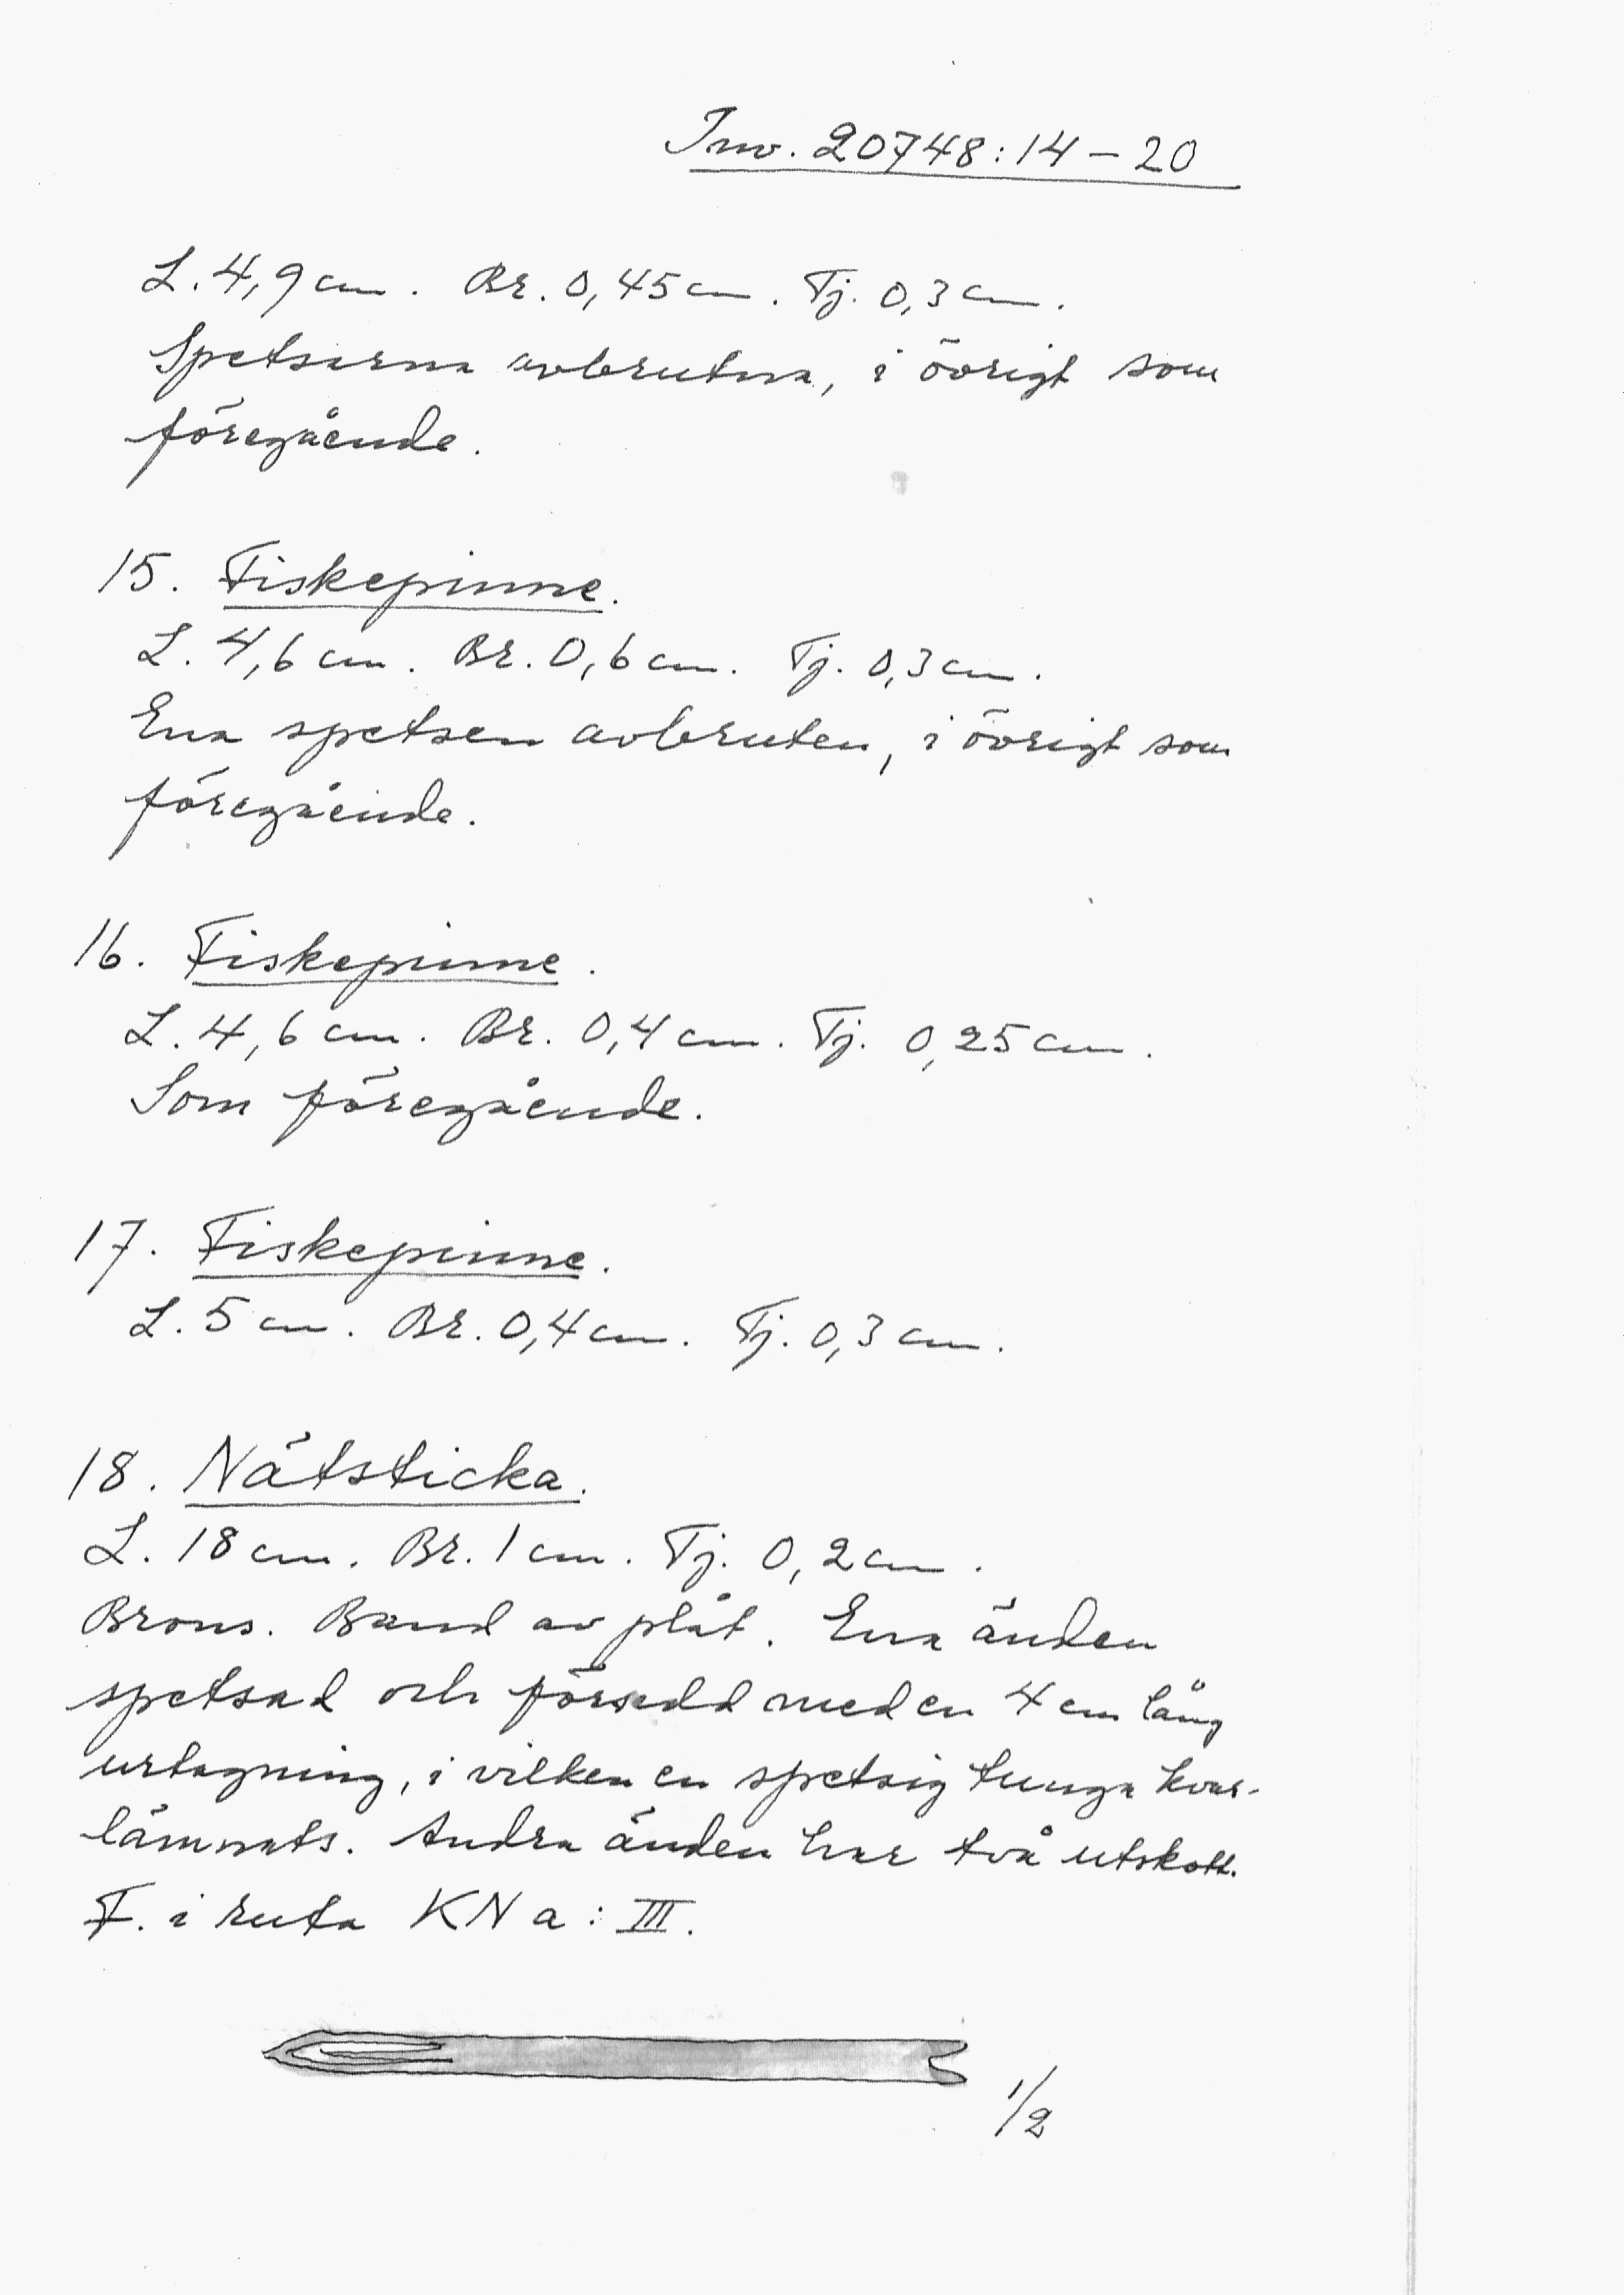 Inv. 20748:14-20
L. 4,9 cm. Br. 0,45 cm. Tj. 0,3 cm.
Spetsarna avbrutna, i övrigt som
föregående.
15. Fiskepinne.
L. 4,6 cm. Br. 0,6 cm. Tj. 0,3 cm.
Ena spetsen avbruten, i övrigt som
föregående.
16. Fiskepinne.
L. 4,6 cm. Br. 0,4 cm. Tj. 0,25 cm.
Som föregående.
17. Fiskepinne.
L. 5 cm. Br. 0,4 cm. Tj. 0,3 cm.
18. Nätsticka.
L. 18 cm. Br. 1 cm. Tj. 0,2 cm.
Brons. Band av plåt. Ena änden
spetsad och försedd med en 4 cm lång
urtagning, i vilken en spetsig tunga kvar-
lämnats. Andra änden har två utskott.
F. i ruta KN a: III.
1/2